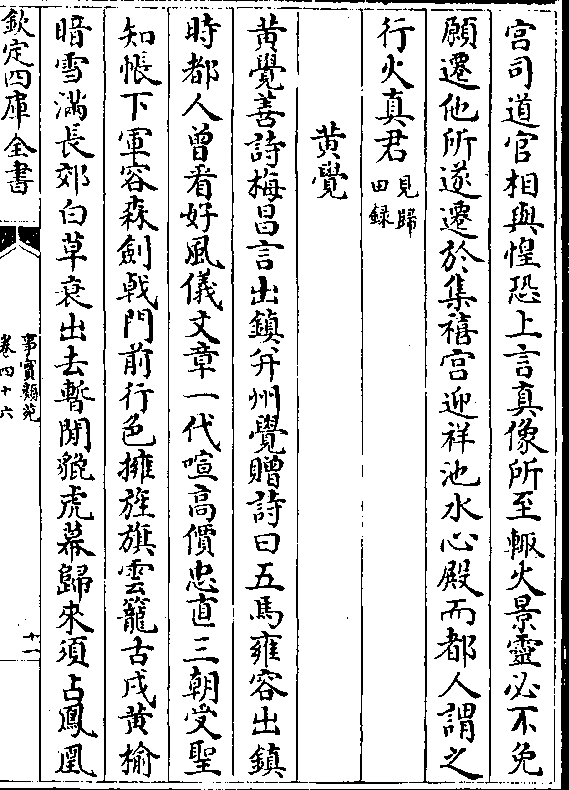 宫司道官相與惶恐上言真像所至輙火景靈必不免
願遷他所遂遷於集禧宫迎祥池水心殿而都人謂之
行火真君見歸
田録
黄覺
黄覺善詩梅昌言出鎮并州覺贈詩曰五馬雍容出鎮
時都人曽看好風儀文章一代喧高價忠直三朝受聖
知帳下軍容森劍戟門前行色擁旌旗雲籠古戍黄榆
暗雪滿長郊白草衰出去暫開貔虎幕歸來須占鳳凰
欽定四庫全書
事實類苑
卷四十六
十一